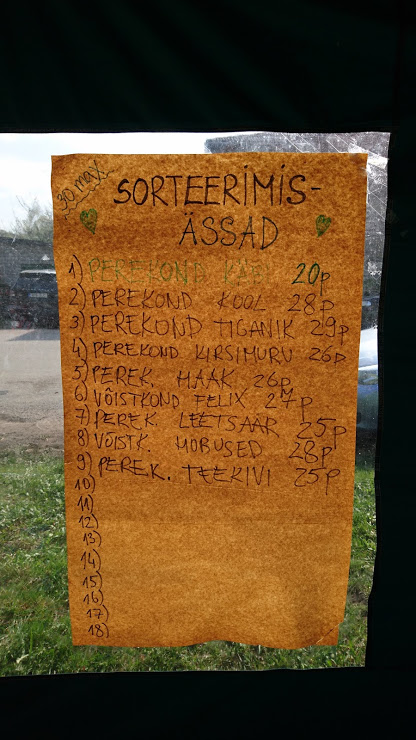 30 max.
SORTEERIMIS-
ÄSSAD
1) PEREKOND 20p
2) PEREKOND KOOL 28p
3) PEREKOND TIGANIK 29p
4) PEREKOND KIRSIMURU 26p
5) PEREK. HAAK 26p
6) VÕISTKOND FELIX 27p
7) PEREK. LEETSAAR 25p
8) VÕISTK. HOBUSED 28p
9) PEREK. TEEKIVI 25p
10)
11)
12)
13)
14)
15)
16)
17)
18)